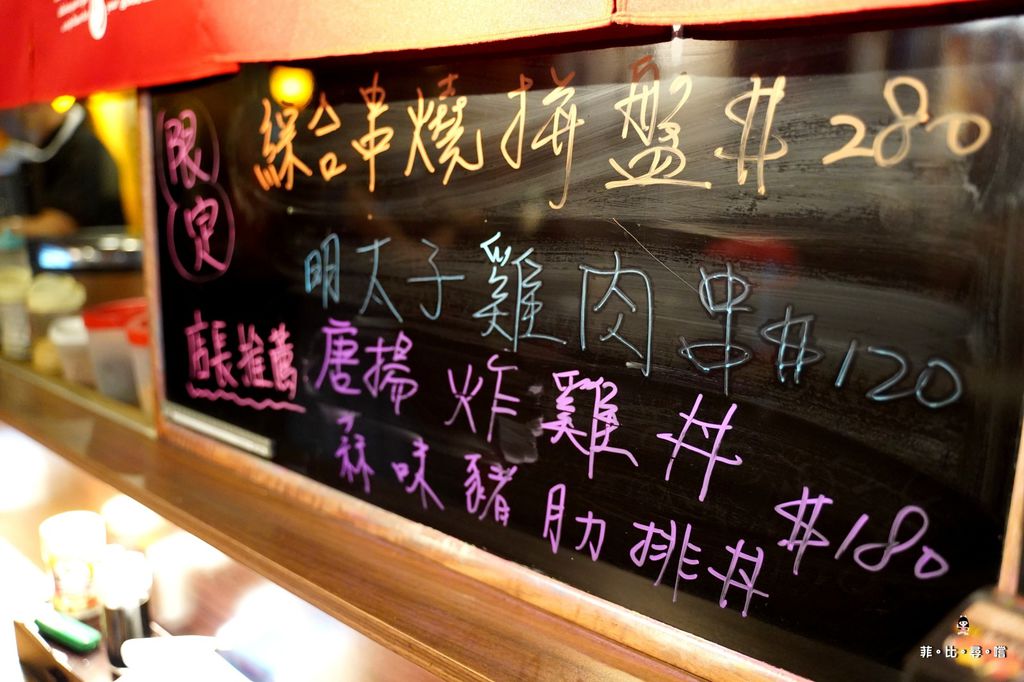 限定
綜合串燒拼盤 $280
明太子雞肉串 $120
店長推薦
唐揚炸雞丼
蒜味豬肋排丼 $180
菲。比。尋。嚐